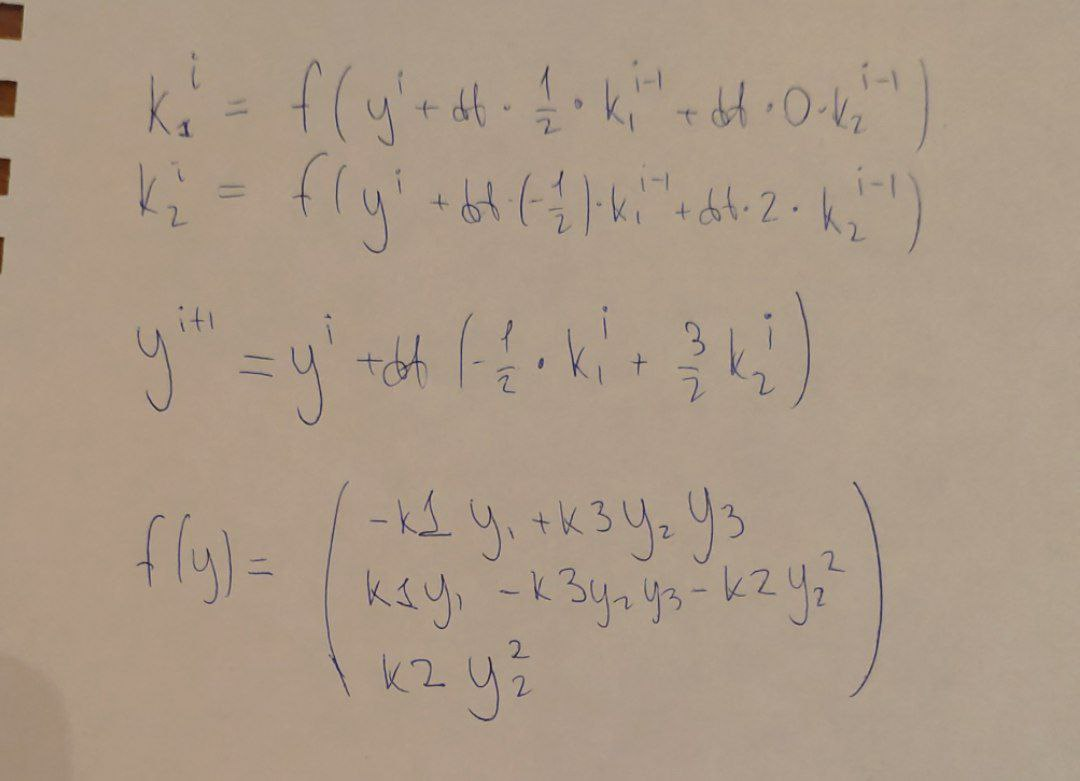 k₁ⁱ = f(yⁱ + dt · 1/2 · k₁ⁱ⁻¹ + dt · 0 · k₂ⁱ⁻¹)
k₂ⁱ = f(yⁱ + dt · (-1/2) · k₁ⁱ⁻¹ + dt · 2 · k₂ⁱ⁻¹)
yⁱ⁺¹ = yⁱ + dt (-1/2 · k₁ⁱ + 3/2 k₂ⁱ)
f(y) = ( -k1 y₁ + k3 y₂ y3
k1 y₁ - k3 y₂ y3 - k2 y₂²
k2 y₂² )